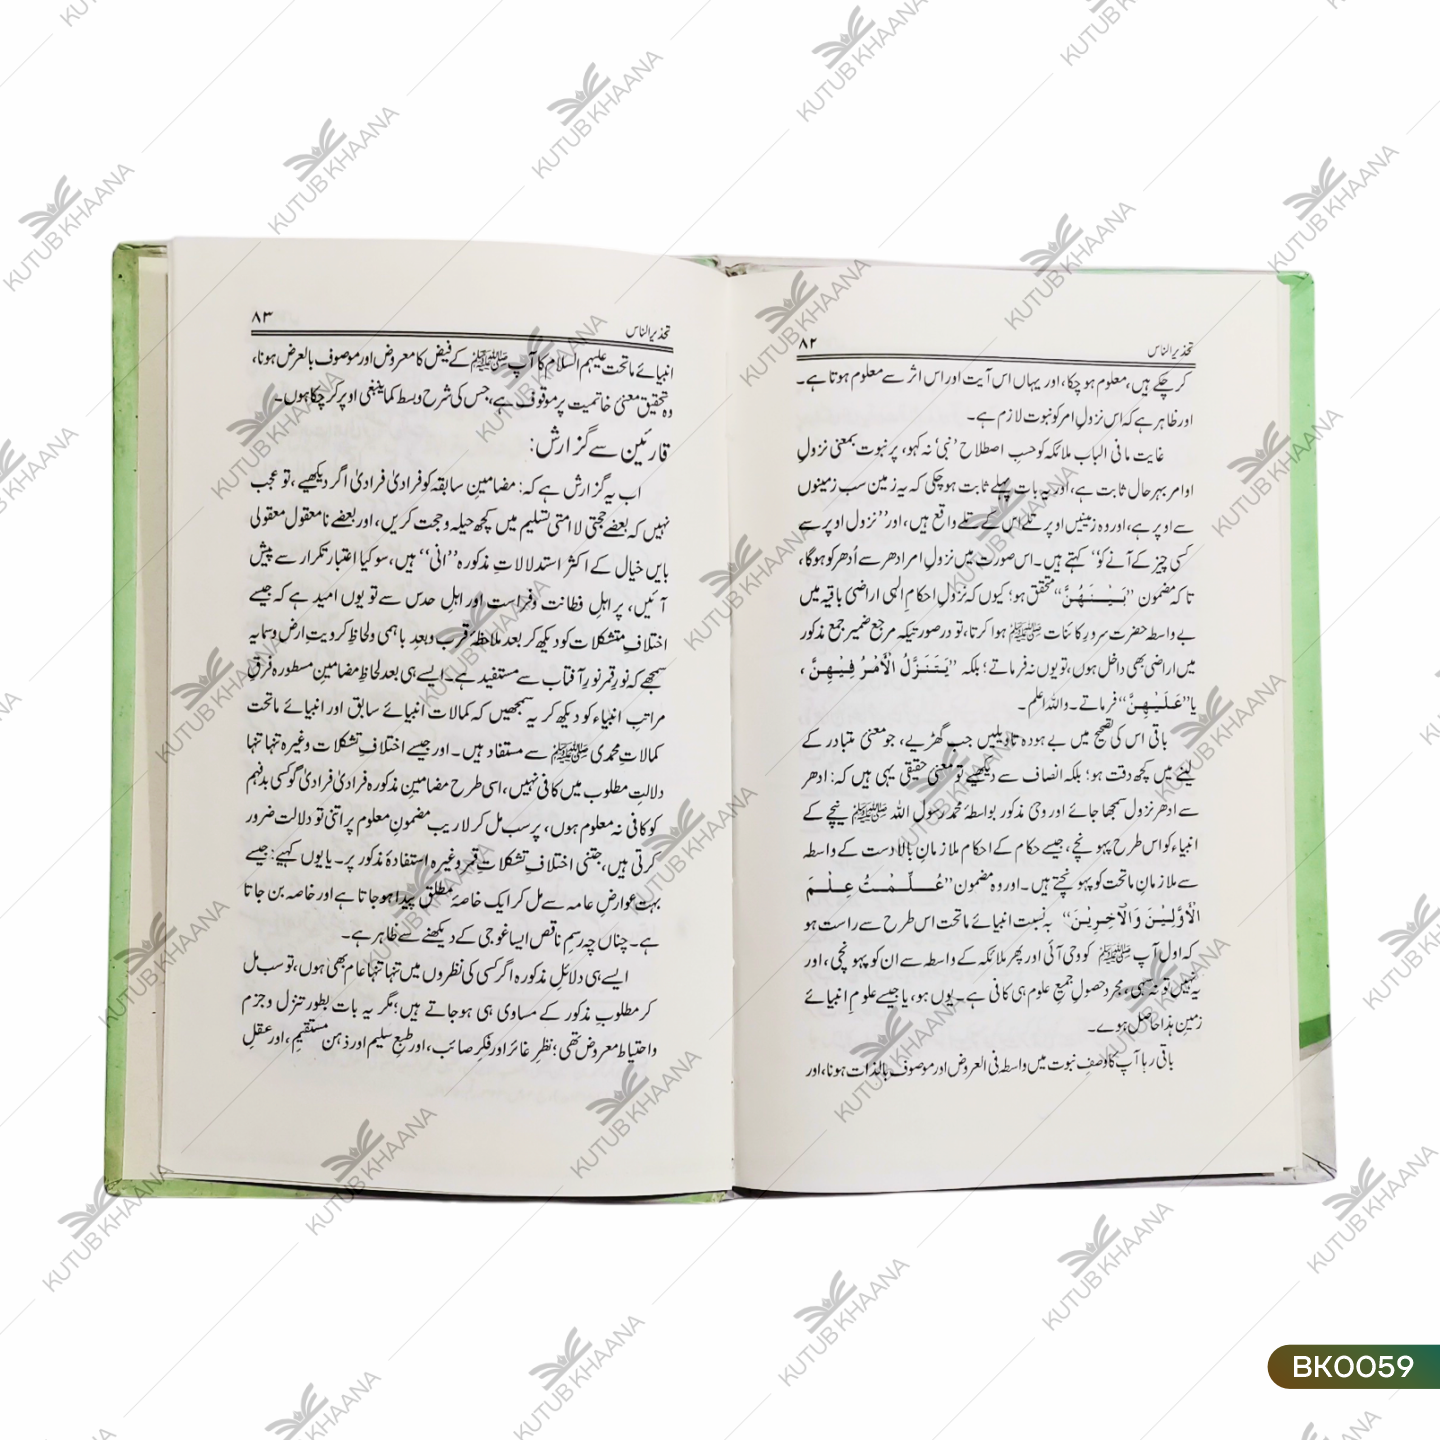 تحذیر الناس
۸۲
کر چکے ہیں، معلوم ہو چکا، اور یہاں اس آیت اور اس اثر سے معلوم ہوتا ہے۔
اور ظاہر ہے کہ اس نزولِ امر کو نبوت لازم ہے۔
غایت ما فی الباب ملائکہ کو حسبِ اصطلاح ’نبی‘ نہ کہو، پر نبوت بمعنی نزولِ
اوامر بہر حال ثابت ہے، اور یہ بات پہلے ثابت ہو چکی کہ یہ زمین سب زمینوں
سے اوپر ہے، اور وہ زمینیں اوپر تلے اس کے تلے واقع ہیں، اور ’’نزول اوپر سے
کسی چیز کے آنے کو‘‘ کہتے ہیں۔ اس صورت میں نزولِ امر ادھر سے اُدھر کو ہوگا،
تا کہ مضمون ’’بَیْنَهُنَّ‘‘ متحقق ہو؛ کیوں کہ نزولِ احکامِ الٰہی اراضیٔ باقیہ میں
بے واسطہ حضرت سرورِ کائنات ﷺ ہوا کرتا، تو در صورتیکہ مرجع ضمیر جمع مذکور
میں اراضی بھی داخل ہوں، تو یوں نہ فرماتے؛ بلکہ ’’یَتَنَزَّلُ الْاَمْرُ فِیْهِنَّ‘‘،
یا ’’عَلَیْهِنَّ‘‘ فرماتے۔ واللہ اعلم۔
باقی اس کی تصحیح میں بے ہودہ تاویلیں جب گھڑیے، جو معنیٔ متبادر کے
لینے میں کچھ دقت ہو؛ بلکہ انصاف سے دیکھیے تو معنیٔ حقیقی یہی ہیں کہ: ادھر
سے ادھر نزول سمجھا جائے اور وحیٔ مذکور بواسطۂ محمد رسول اللہ ﷺ نیچے کے
انبیاء کو اس طرح پہونچے، جیسے حکام کے احکام ملازمانِ بالا دست کے واسطہ
سے ملازمانِ ماتحت کو پہونچتے ہیں۔ اور وہ مضمون ’’عُلِّمْتُ عِلْمَ
الْاَوَّلِیْنَ وَالْآخِرِیْنَ‘‘ بہ نسبت انبیائے ماتحت اس طرح سے راست ہو
کہ اول آپ ﷺ کو وحی آئی اور پھر ملائکہ کے واسطہ سے ان کو پہونچی، اور
یہ نہیں تو نہ سہی، مجرد حصولِ جمیع علوم ہی کافی ہے۔ یوں ہو، یا جیسے علومِ انبیائے
زمین ہذا حاصل ہوے۔
باقی رہا آپ کا وصفِ نبوت میں واسطہ فی العروض اور موصوف بالذات ہونا، اور
تحذیر الناس
۸۳
انبیائے ماتحت علیہم السلام کا آپ ﷺ کے فیض کا معروض اور موصوف بالعرض ہونا،
وہ تحقیق معنیٔ خاتمیت پر موقوف ہے، جس کی شرح و بسط کما ینبغی اوپر کر چکا ہوں۔
قارئین سے گزارش:
اب یہ گزارش ہے کہ: مضامینِ سابقہ کو فرادیٰ فرادیٰ اگر دیکھیے، تو عجب
نہیں کہ بعضے حجتی لا امتی تسلیم میں کچھ حیلہ و حجت کریں، اور بعضے نامعقول معقولی
بایں خیال کے اکثر استدلالاتِ مذکورہ ’’انی‘‘ ہیں، سو کیا اعتبار تکرار سے پیش
آئیں، پر اہلِ فطانت و فراست اور اہلِ حدس سے تو یوں امید ہے کہ جیسے
اختلافِ متشکلات کو دیکھ کر بعد ملاحظۂ قرب و بعدِ باہمی و لحاظِ کرویتِ ارض و سما یہ
سمجھے کہ نورِ قمر نورِ آفتاب سے مستفید ہے۔ ایسے ہی بعد لحاظِ مضامینِ مسطورہ فرقِ
مراتبِ انبیاء کو دیکھ کر یہ سمجھیں کہ کمالات انبیائے سابق اور انبیائے ماتحت
کمالاتِ محمدی ﷺ سے مستفاد ہیں۔ اور جیسے اختلافِ تشکلات وغیرہ تنہا تنہا
دلالتِ مطلوب میں کافی نہیں، اسی طرح مضامینِ مذکورہ فرادیٰ فرادیٰ گو کسی بدفہم
کو کافی نہ معلوم ہوں، پر سب مل کر لاریب مضمونِ معلوم پر اتنی تو دلالت ضرور
کرتی ہیں، جتنی اختلافِ تشکلاتِ قمر وغیرہ استفادۂ مذکور پر۔ یا یوں کہیے: جیسے
بہت عوارضِ عامہ سے مل کر ایک خاصۂ مطلق پیدا ہو جاتا ہے اور خاصہ بن جاتا
ہے۔ چناں چہ رسمِ ناقص ایساغوجی کے دیکھنے سے ظاہر ہے۔
ایسے ہی دلائلِ مذکورہ اگر کسی کی نظروں میں تنہا تنہا عام بھی ہوں، تو سب مل
کر مطلوبِ مذکور کے مساوی ہی ہو جاتے ہیں؛ مگر یہ بات بطورِ تنزل و جزم
و احتیاط معروض تھی؛ نظرِ غائر اور فکرِ صائب، اور طبعِ سلیم اور ذہن مستقیم، اور عقلِ
KUTUB KHAANA
BK0059